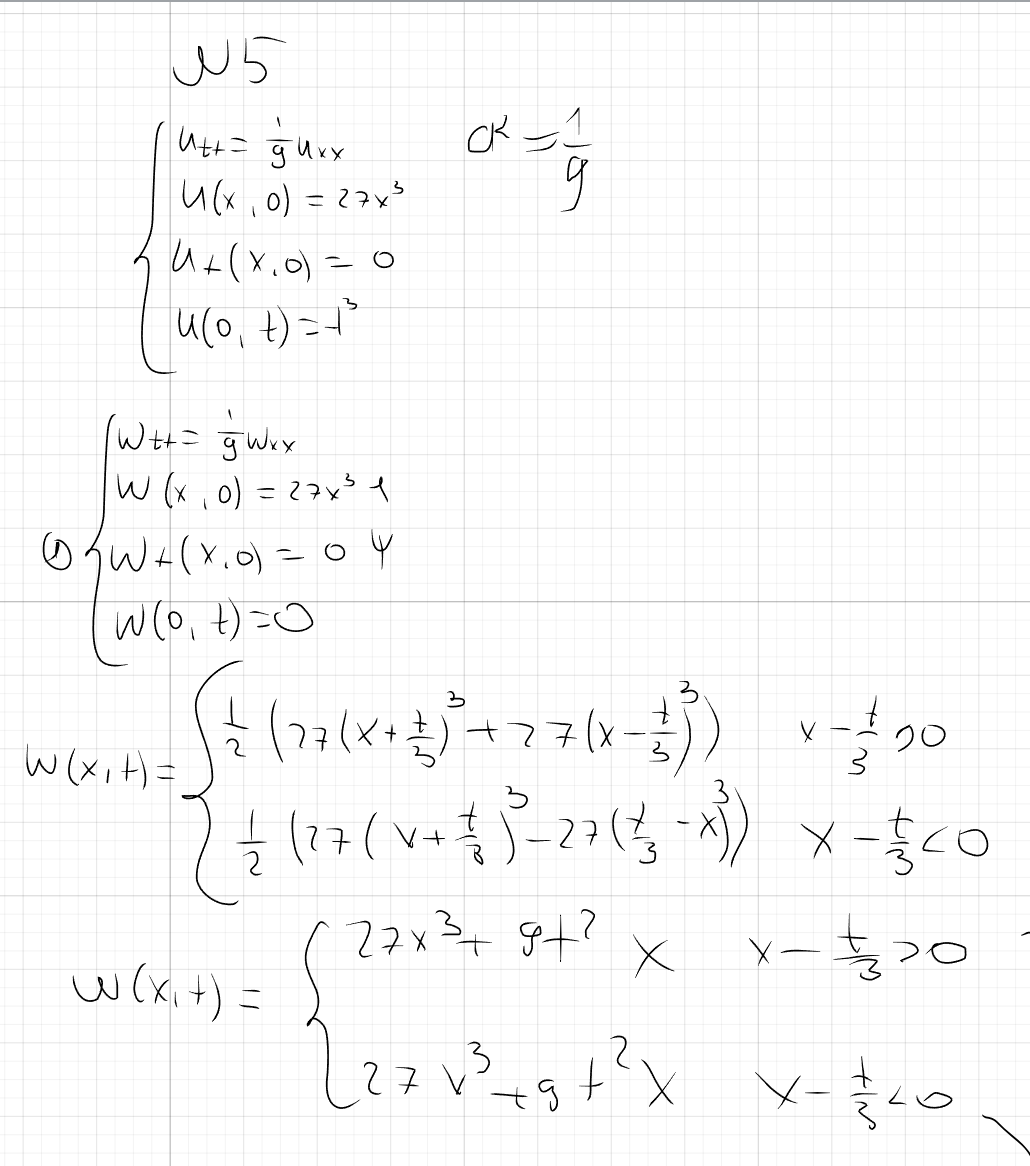 №5
u_tt = 1/9 u_xx    a² = 1/9
u(x, 0) = 27x³
u_t(x, 0) = 0
u(0, t) = t³
W_tt = 1/9 W_xx
W(x, 0) = 27x³ φ
① W_t(x, 0) = 0 ψ
W(0, t) = 0
W(x, t) = { 1/2 (27(x + t/3)³ + 27(x - t/3)³)    x - t/3 > 0
1/2 (27(x + t/3)³ - 27(t/3 - x)³)    x - t/3 < 0
W(x, t) = { 27x³ + 9t² x    x - t/3 > 0
27x³ + 9t² x    x - t/3 < 0